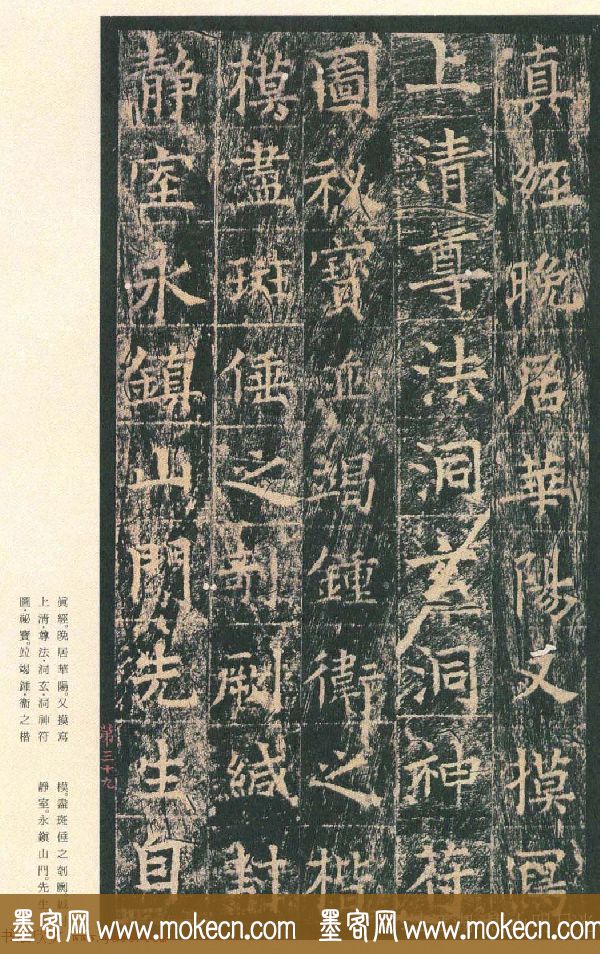 真經晚居華陽又摸寫
上清尊法洞玄洞神符
圖祕寶並竭鍾衛之楷
模盡斑倕之剞劂緘封
靜室永鎮山門先生自
眞經。晚居華陽。又摸寫
上清・尊・法・洞玄・洞神符
圖・祕寶。竝竭鍾・衞之楷
模。盡斑倕之剞劂緘
靜室。永鎭山門。先生
第三十九
墨客网 www.mokecn.com 墨客网 www.mokecn.com